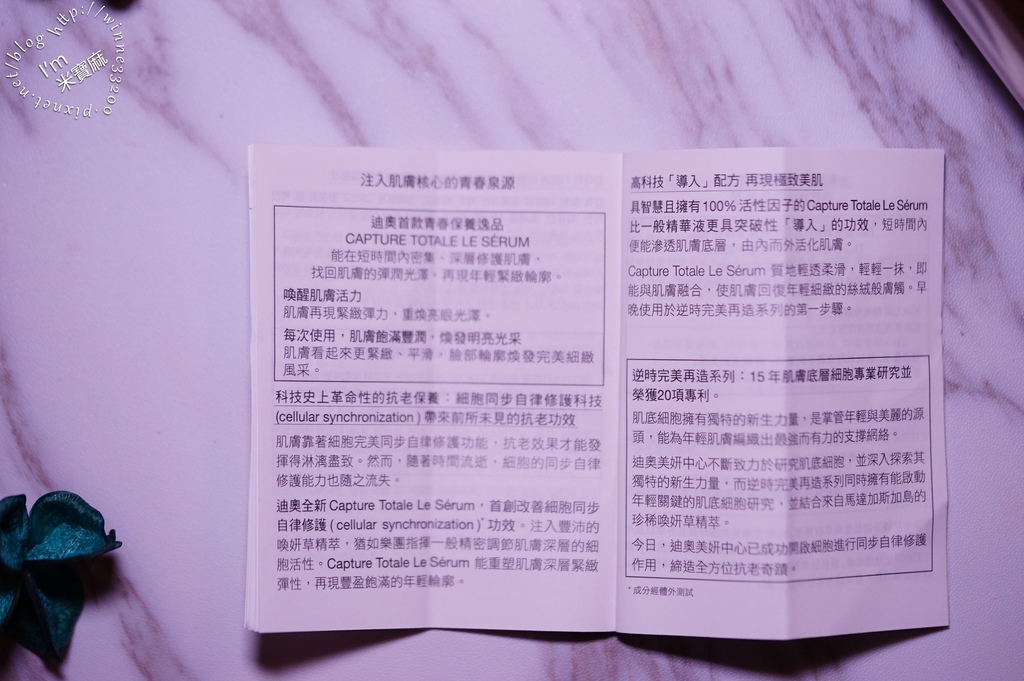 http://winne33200.pixnet.net/blog
I'm
米寶麻
注入肌膚核心的青春泉源
迪奧首款青春保養逸品
CAPTURE TOTALE LE SÉRUM
能在短時間內密集、深層修護肌膚，
找回肌膚的彈潤光澤，再現年輕緊緻輪廓。
喚醒肌膚活力
肌膚再現緊緻彈力，重煥亮眼光澤。
每次使用，肌膚飽滿豐潤，煥發明亮光采
肌膚看起來更緊緻、平滑，臉部輪廓煥發完美細緻
風采。
科技史上革命性的抗老保養：細胞同步自律修護科技
(cellular synchronization) 帶來前所未見的抗老功效
肌膚靠著細胞完美同步自律修護功能，抗老效果才能發
揮得淋漓盡致。然而，隨著時間流逝，細胞的同步自律
修護能力也隨之流失。
迪奧全新 Capture Totale Le Sérum，首創改善細胞同步
自律修護 (cellular synchronization)* 功效。注入豐沛的
喚妍草精萃，猶如樂團指揮一般精密調節肌膚深層的細
胞活性。Capture Totale Le Sérum 能重塑肌膚深層緊緻
彈性，再現豐盈飽滿的年輕輪廓。
高科技「導入」配方 再現極致美肌
具智慧且擁有100% 活性因子的Capture Totale Le Sérum
比一般精華液更具突破性「導入」的功效，短時間內
便能滲透肌膚底層，由內而外活化肌膚。
Capture Totale Le Sérum 質地輕透柔滑，輕輕一抹，即
能與肌膚融合，使肌膚回復年輕細緻的絲絨般膚觸。早
晚使用於逆時完美再造系列的第一步驟。
逆時完美再造系列：15 年肌膚底層細胞專業研究並
榮獲20項專利。
肌底細胞擁有獨特的新生力量，是掌管年輕與美麗的源
頭，能為年輕肌膚編織出最強而有力的支撐網絡。
迪奧美妍中心不斷致力於研究肌底細胞，並深入探索其
獨特的新生力量，而逆時完美再造系列同時擁有能啟動
年輕關鍵的肌底細胞研究，並結合來自馬達加斯加島的
珍稀喚妍草精萃。
今日，迪奧美妍中心已成功開啟細胞進行同步自律修護
作用，締造全方位抗老奇蹟。
* 成分經體外測試